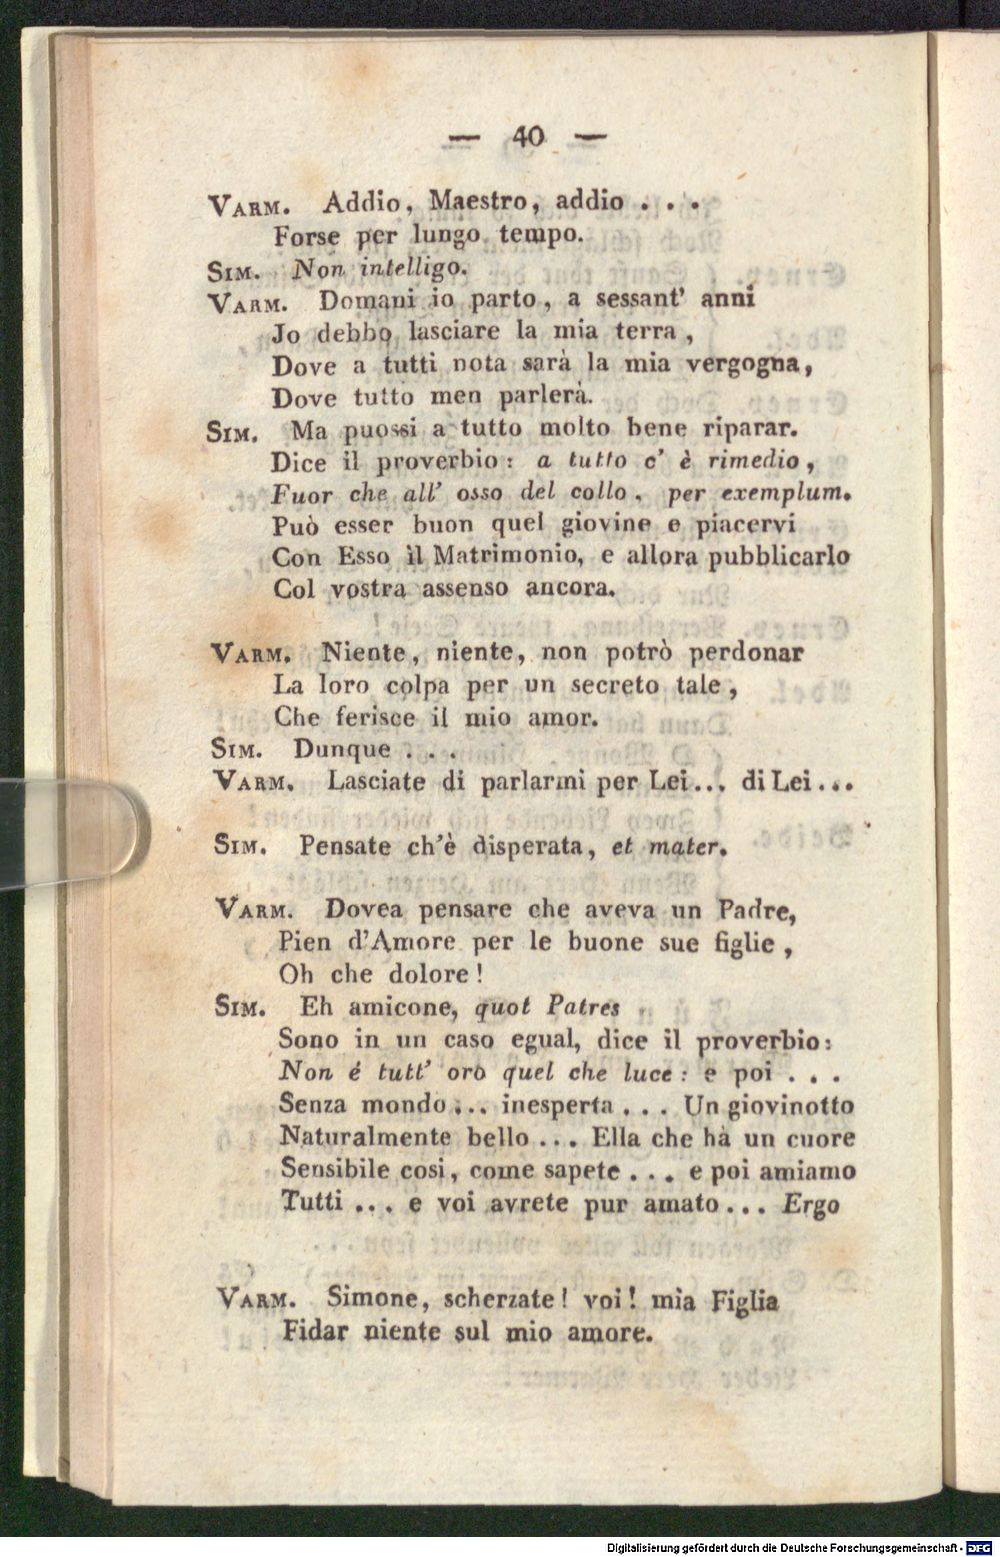 — 40 —
VARM. Addio, Maestro, addio . . .
Forse per lungo tempo.
SIM. Non intelligo.
VARM. Domani io parto, a sessant' anni
Jo debbo lasciare la mia terra,
Dove a tutti nota sarà la mia vergogna,
Dove tutto men parlerà.
SIM. Ma puossi a tutto molto bene riparar.
Dice il proverbio: a tutto c' è rimedio,
Fuor che all' osso del collo, per exemplum.
Può esser buon quel giovine e piacervi
Con Esso il Matrimonio, e allora pubblicarlo
Col vostra assenso ancora.
VARM. Niente, niente, non potrò perdonar
La loro colpa per un secreto tale,
Che ferisce il mio amor.
SIM. Dunque . . .
VARM. Lasciate di parlarmi per Lei... di Lei...
SIM. Pensate ch'è disperata, et mater.
VARM. Dovea pensare che aveva un Padre,
Pien d'Amore per le buone sue figlie,
Oh che dolore!
SIM. Eh amicone, quot Patres
Sono in un caso egual, dice il proverbio:
Non é tutt' oro quel che luce: e poi . . .
Senza mondo... inesperta . . . Un giovinotto
Naturalmente bello . . . Ella che ha un cuore
Sensibile cosi, come sapete . . . e poi amiamo
Tutti ... e voi avrete pur amato . . . Ergo
VARM. Simone, scherzate! voi! mia Figlia
Fidar niente sul mio amore.
Digitalisierung gefördert durch die Deutsche Forschungsgemeinschaft - DFG